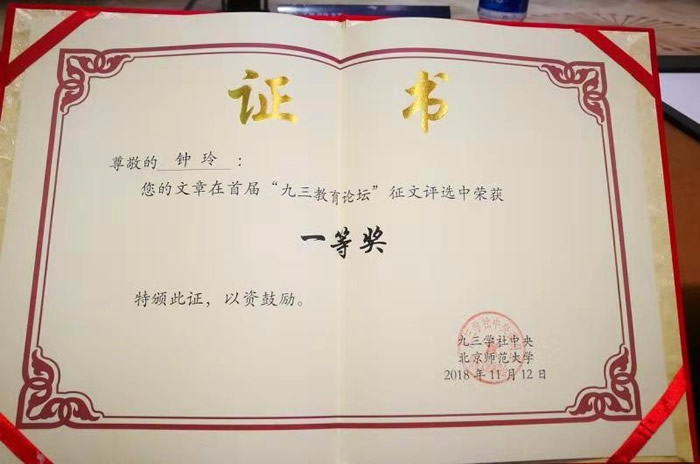 证 书
尊敬的 钟 玲 ：
您的文章在首届“九三教育论坛”征文评选中荣获
一等奖
特颁此证，以资鼓励。
九三学社中央
北京师范大学
2018年11月12日